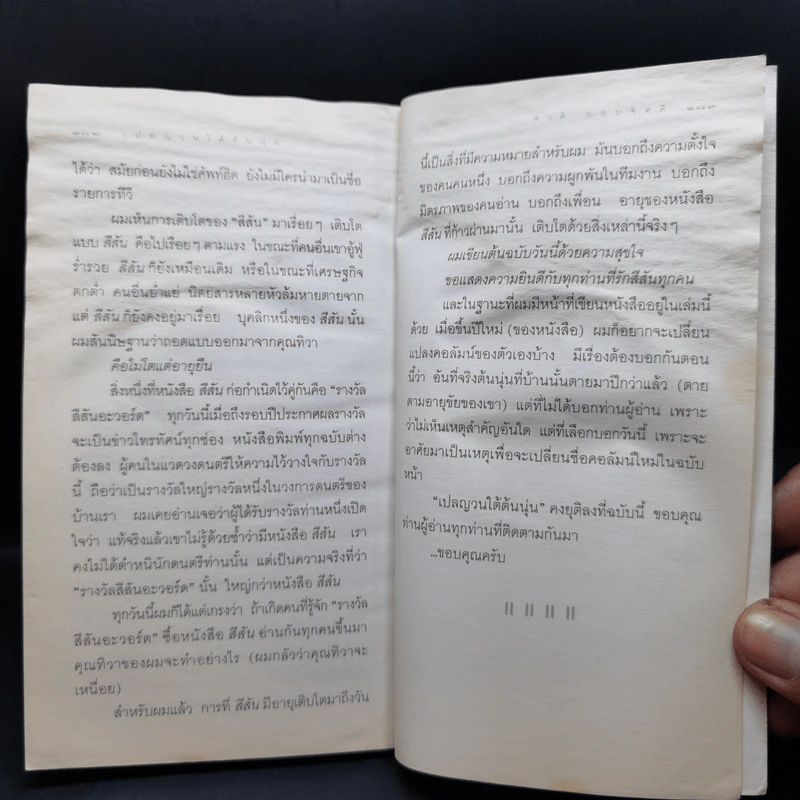 ๒๘๒ เปลญวนใต้ต้นนุ่น
ได้ว่า สมัยก่อนยังไม่ใช่ศัพท์ฮิต ยังไม่มีใครนำมาเป็นชื่อ
รายการทีวี
ผมเห็นการเติบโตของ “สีสัน” มาเรื่อยๆ เติบโต
แบบ สีสัน คือไปเรื่อยๆ ตามแรง ในขณะที่คนอื่นเขาอู้ฟู่
ร่ำรวย สีสัน ก็ยังเหมือนเดิม หรือในขณะที่เศรษฐกิจ
ตกต่ำ คนอื่นย่ำแย่ นิตยสารหลายหัวล้มหายตายจาก
แต่ สีสัน ก็ยังคงอยู่มาเรื่อย บุคลิกหนึ่งของ สีสัน นั้น
ผมสันนิษฐานว่าถอดแบบออกมาจากคุณทิวา
คือไม่โตแต่อายุยืน
สิ่งหนึ่งที่หนังสือ สีสัน ก่อกำเนิดไว้คู่กันคือ “รางวัล
สีสันอะวอร์ด” ทุกวันนี้เมื่อถึงรอบปีประกาศผลรางวัล
จะเป็นข่าวโทรทัศน์ทุกช่อง หนังสือพิมพ์ทุกฉบับต่าง
ต้องลง ผู้คนในแวดวงดนตรีให้ความไว้วางใจกับรางวัล
นี้ ถือว่าเป็นรางวัลใหญ่รางวัลหนึ่งในวงการดนตรีของ
บ้านเรา ผมเคยอ่านเจอว่าผู้ได้รับรางวัลท่านหนึ่งเปิด
ใจว่า แท้จริงแล้วเขาไม่รู้ด้วยซ้ำว่ามีหนังสือ สีสัน เรา
คงไม่ได้ตำหนินักดนตรีท่านนั้น แต่เป็นความจริงที่ว่า
“รางวัลสีสันอะวอร์ด” นั้น ใหญ่กว่าหนังสือ สีสัน
ทุกวันนี้ผมก็ได้แต่เกรงว่า ถ้าเกิดคนที่รู้จัก “รางวัล
สีสันอะวอร์ด” ซื้อหนังสือ สีสัน อ่านกันทุกคนขึ้นมา
คุณทิวาของผมจะทำอย่างไร (ผมกลัวว่าคุณทิวาจะ
เหนื่อย)
สำหรับผมแล้ว การที่ สีสัน มีอายุเติบโตมาถึงวัน
ชาติ กอบจิตติ ๒๘๓
นี้เป็นสิ่งที่มีความหมายสำหรับผม มันบอกถึงความตั้งใจ
ของคนคนหนึ่ง บอกถึงความผูกพันในทีมงาน บอกถึง
มิตรภาพของคนอ่าน บอกถึงเพื่อน อายุของหนังสือ
สีสัน ที่ก้าวผ่านมานั้น เติบโตด้วยสิ่งเหล่านี้จริงๆ
ผมเขียนต้นฉบับวันนี้ด้วยความสุขใจ
ขอแสดงความยินดีกับทุกท่านที่รักสีสันทุกคน
และในฐานะที่ผมมีหน้าที่เขียนหนังสืออยู่ในเล่มนี้
ด้วย เมื่อขึ้นปีใหม่ (ของหนังสือ) ผมก็อยากจะเปลี่ยน
แปลงคอลัมน์ของตัวเองบ้าง มีเรื่องต้องบอกกันตอน
นี้ว่า อันที่จริงต้นนุ่นที่บ้านนั้นตายมาปีกว่าแล้ว (ตาย
ตามอายุขัยของเขา) แต่ที่ไม่ได้บอกท่านผู้อ่าน เพราะ
ว่าไม่เห็นเหตุสำคัญอันใด แต่ที่เลือกบอกวันนี้ เพราะจะ
อาศัยมาเป็นเหตุเพื่อจะเปลี่ยนชื่อคอลัมน์ใหม่ในฉบับ
หน้า
“เปลญวนใต้ต้นนุ่น” คงยุติลงที่ฉบับนี้ ขอบคุณ
ท่านผู้อ่านทุกท่านที่ติดตามกันมา
...ขอบคุณครับ